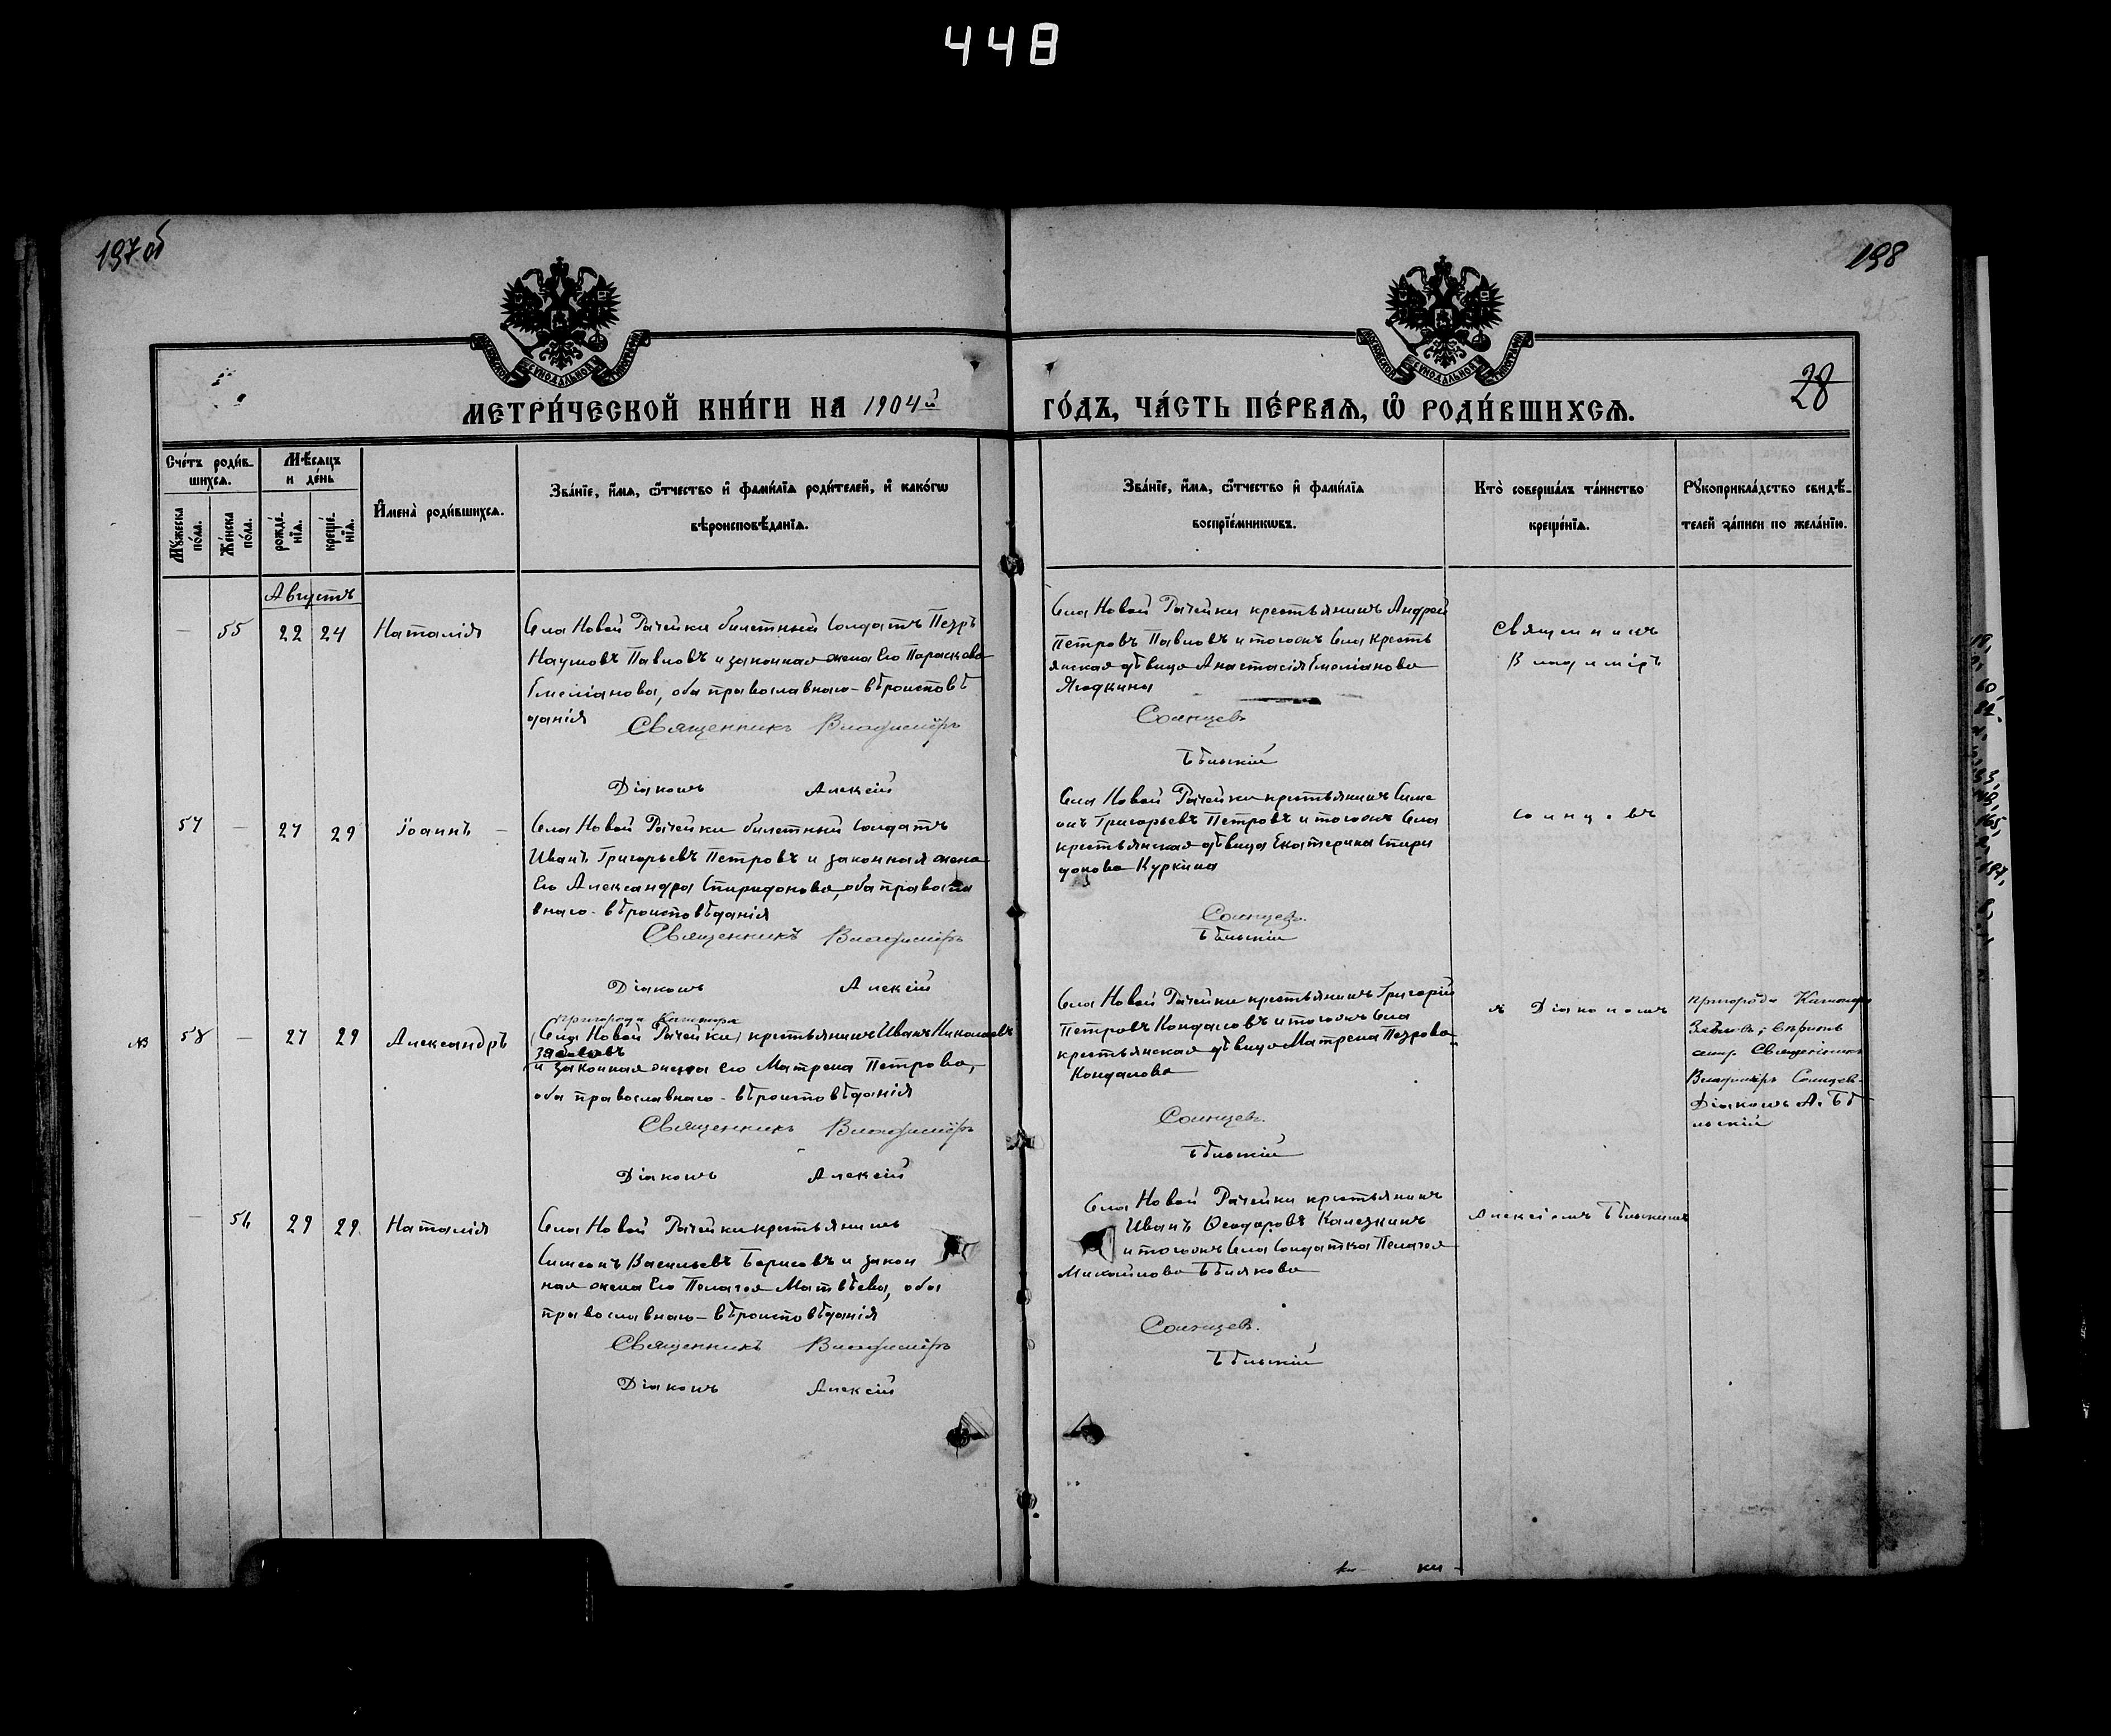 448
197 об
198
28
МЕТРИ́ЧЕСКОЙ КНИ́ГИ НА 1904й
ГО́ДЪ, ЧА́СТЬ ПЕ́РВАЯ, Ѡ҆ РОДИ́ВШИХСЯ.
Сче́тъ роди́в-
шихся.
Мѣ́сяцъ
и де́нь
Му́жеска по́ла.
Же́нска по́ла.
рожде́-нїя.
креще́-нїя.
И҆мена̀ роди́вшихся.
Зва́нїе, и҆́мя, ѻ҆́тчество и҆ фами́лїя роди́телей, и҆ како́гѡ
вѣроисповѣ́данїя.
Зва́нїе, и҆́мя, ѻ҆́тчество и҆ фами́лїя
воспрїе́мникѡвъ.
Кто̀ соверша́лъ та́инство
креще́нїя.
Рꙋкоприкла́дство свидѣ́-
телей за́писи по жела́нїю.
Августъ
55 22 24 Наталія
Села Новой Рачейки билетный солдатъ Петръ
Наумовъ Павловъ и законная жена его Параскева
Емеліанова, оба православнаго-вѣроисповѣ
данія
Священникъ Владиміръ
Діаконъ Алексій
Села Новой Рачейки крестьянинъ Андрей
Петровъ Павловъ и тогожъ села кресть
янская дѣвица Анастасія Емеліанова
Ягодкина
Солнцевъ
Бѣльскій
Священникъ
Владиміръ
57 27 29 Іоаннъ
Села Новой Рачейки билетный солдатъ
Иванъ Григорьевъ Петровъ и законная жена
его Александра Спиридонова, оба правосла
внаго-вѣроисповѣданія
Священникъ Владиміръ
Діаконъ Алексій
Села Новой Рачейки крестьянинъ Симе
онъ Григорьевъ Петровъ и тогожъ села
крестьянская дѣвица Екатерина Спири
донова Куркина
Солнцевъ.
Бѣльскій
Солнцевъ
58 27 29 Александръ
пригорода Кашпира
(Села Новой Рачейки) крестьянинъ Иванъ Николаевъ
и законная жена его Матрена Петрова,
оба православнаго-вѣроисповѣданія
Священникъ Владиміръ
Діаконъ Алексій
Села Новой Рачейки крестьянинъ Григорій
Петровъ Кондаловъ и тогожъ села
крестьянская дѣвица Матрена Петрова
Кондалова
Солнцевъ.
Бѣльскій
съ Діакономъ
пригорода Кашпира
Священникъ
Владиміръ Солнцевъ
Діаконъ А. Бѣ
льскій
56 29 29 Наталія
Села Новой Рачейки крестьянинъ
Симеонъ Васильевъ Борисовъ и закон
ная жена его Пелагея Матвѣева, оба
православнаго-вѣроисповѣданія
Священникъ Владиміръ
Діаконъ Алексій
Села Новой Рачейки крестьянинъ
Иванъ Ѳеодоровъ Калезкинъ
и тогожъ села солдатка Пелагея
Михайлова Бѣлякова
Солнцевъ.
Бѣльскій
Алексіемъ Бѣльскимъ